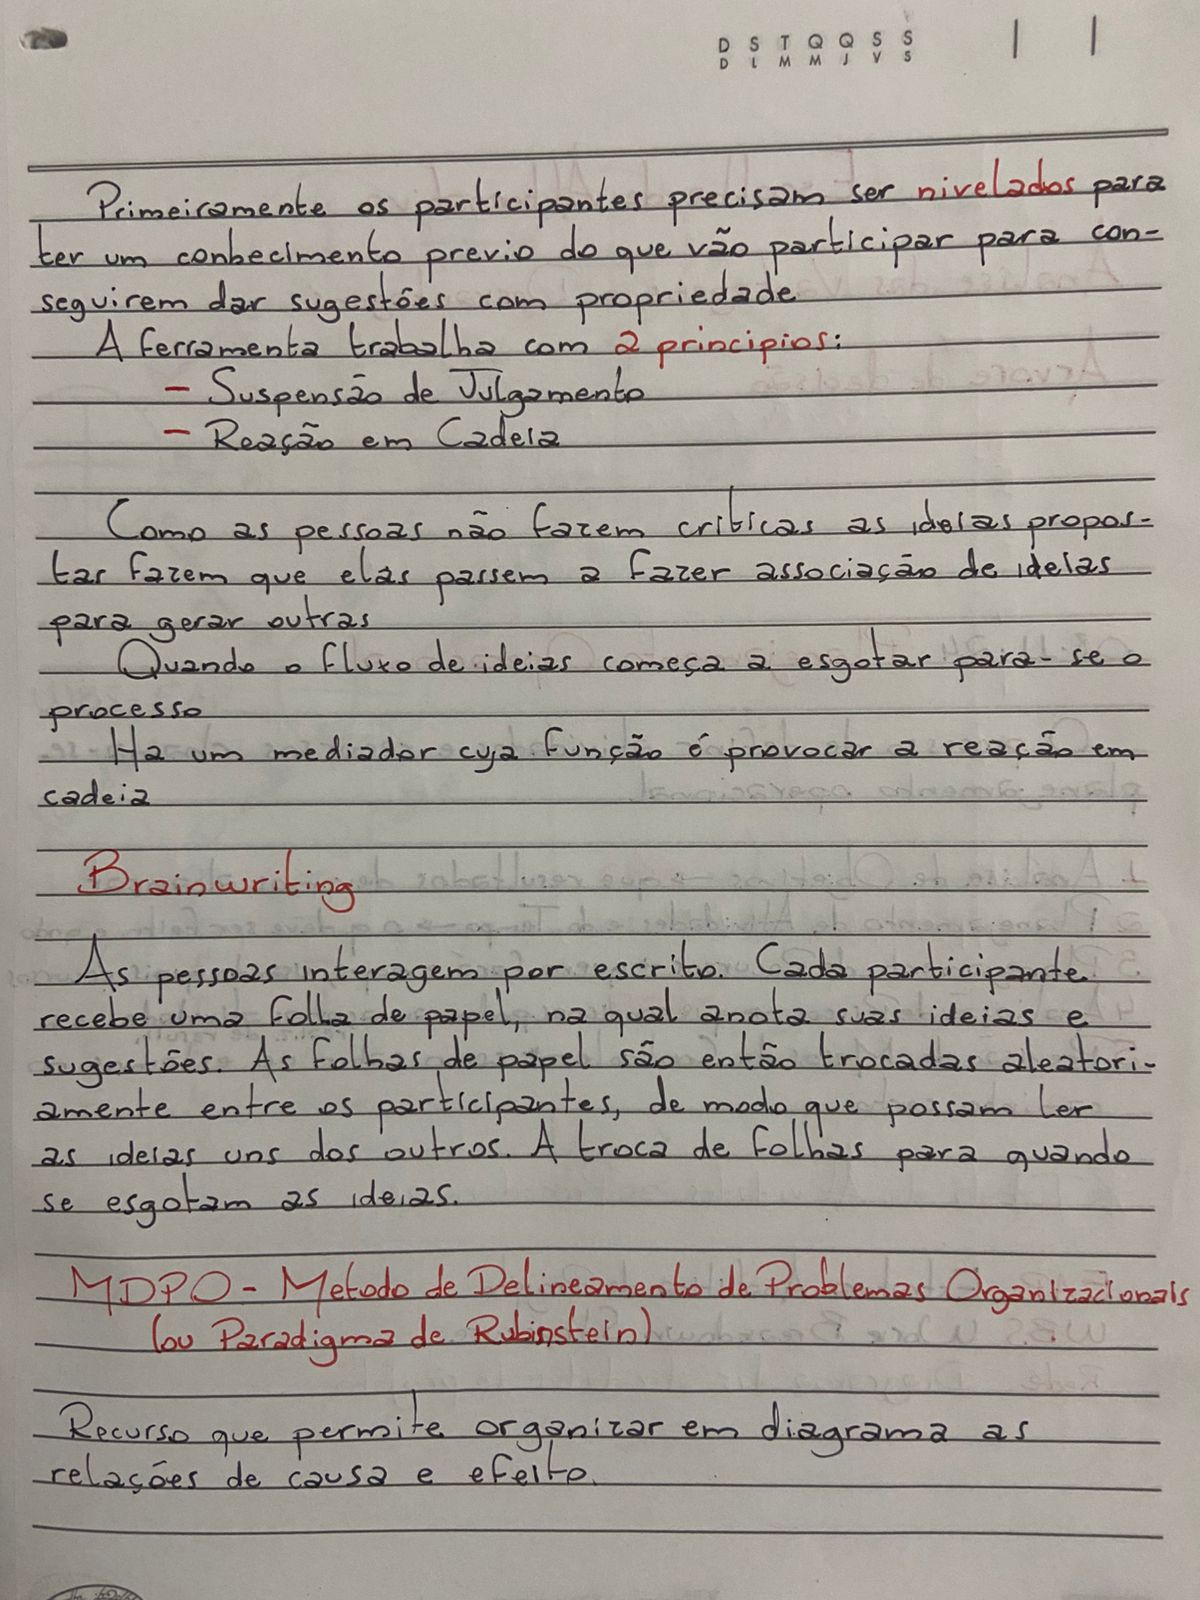 D S T Q Q S S
D L M M J V S
Primeiramente os participantes precisam ser nivelados para
ter um conhecimento previo do que vão participar para con-
seguirem dar sugestões com propriedade
A ferramenta trabalha com 2 principios:
- Suspensão de Julgamento
- Reação em Cadeia
Como as pessoas não fazem críticas as ideias propos-
tas fazem que elas passem a fazer associação de ideias
para gerar outras
Quando o fluxo de ideias começa a esgotar para-se o
processo
Ha um mediador cuja função é provocar a reação em
cadeia
Brainwriting
As pessoas interagem por escrito. Cada participante
recebe uma folha de papel, na qual anota suas ideias e
sugestões. As folhas de papel são então trocadas aleatori-
amente entre os participantes, de modo que possam ler
as ideias uns dos outros. A troca de folhas para quando
se esgotam as ideias.
MDPO - Metodo de Delineamento de Problemas Organizacionais
(ou Paradigma de Rubinstein)
Recurso que permite organizar em diagrama as
relações de causa e efeito.